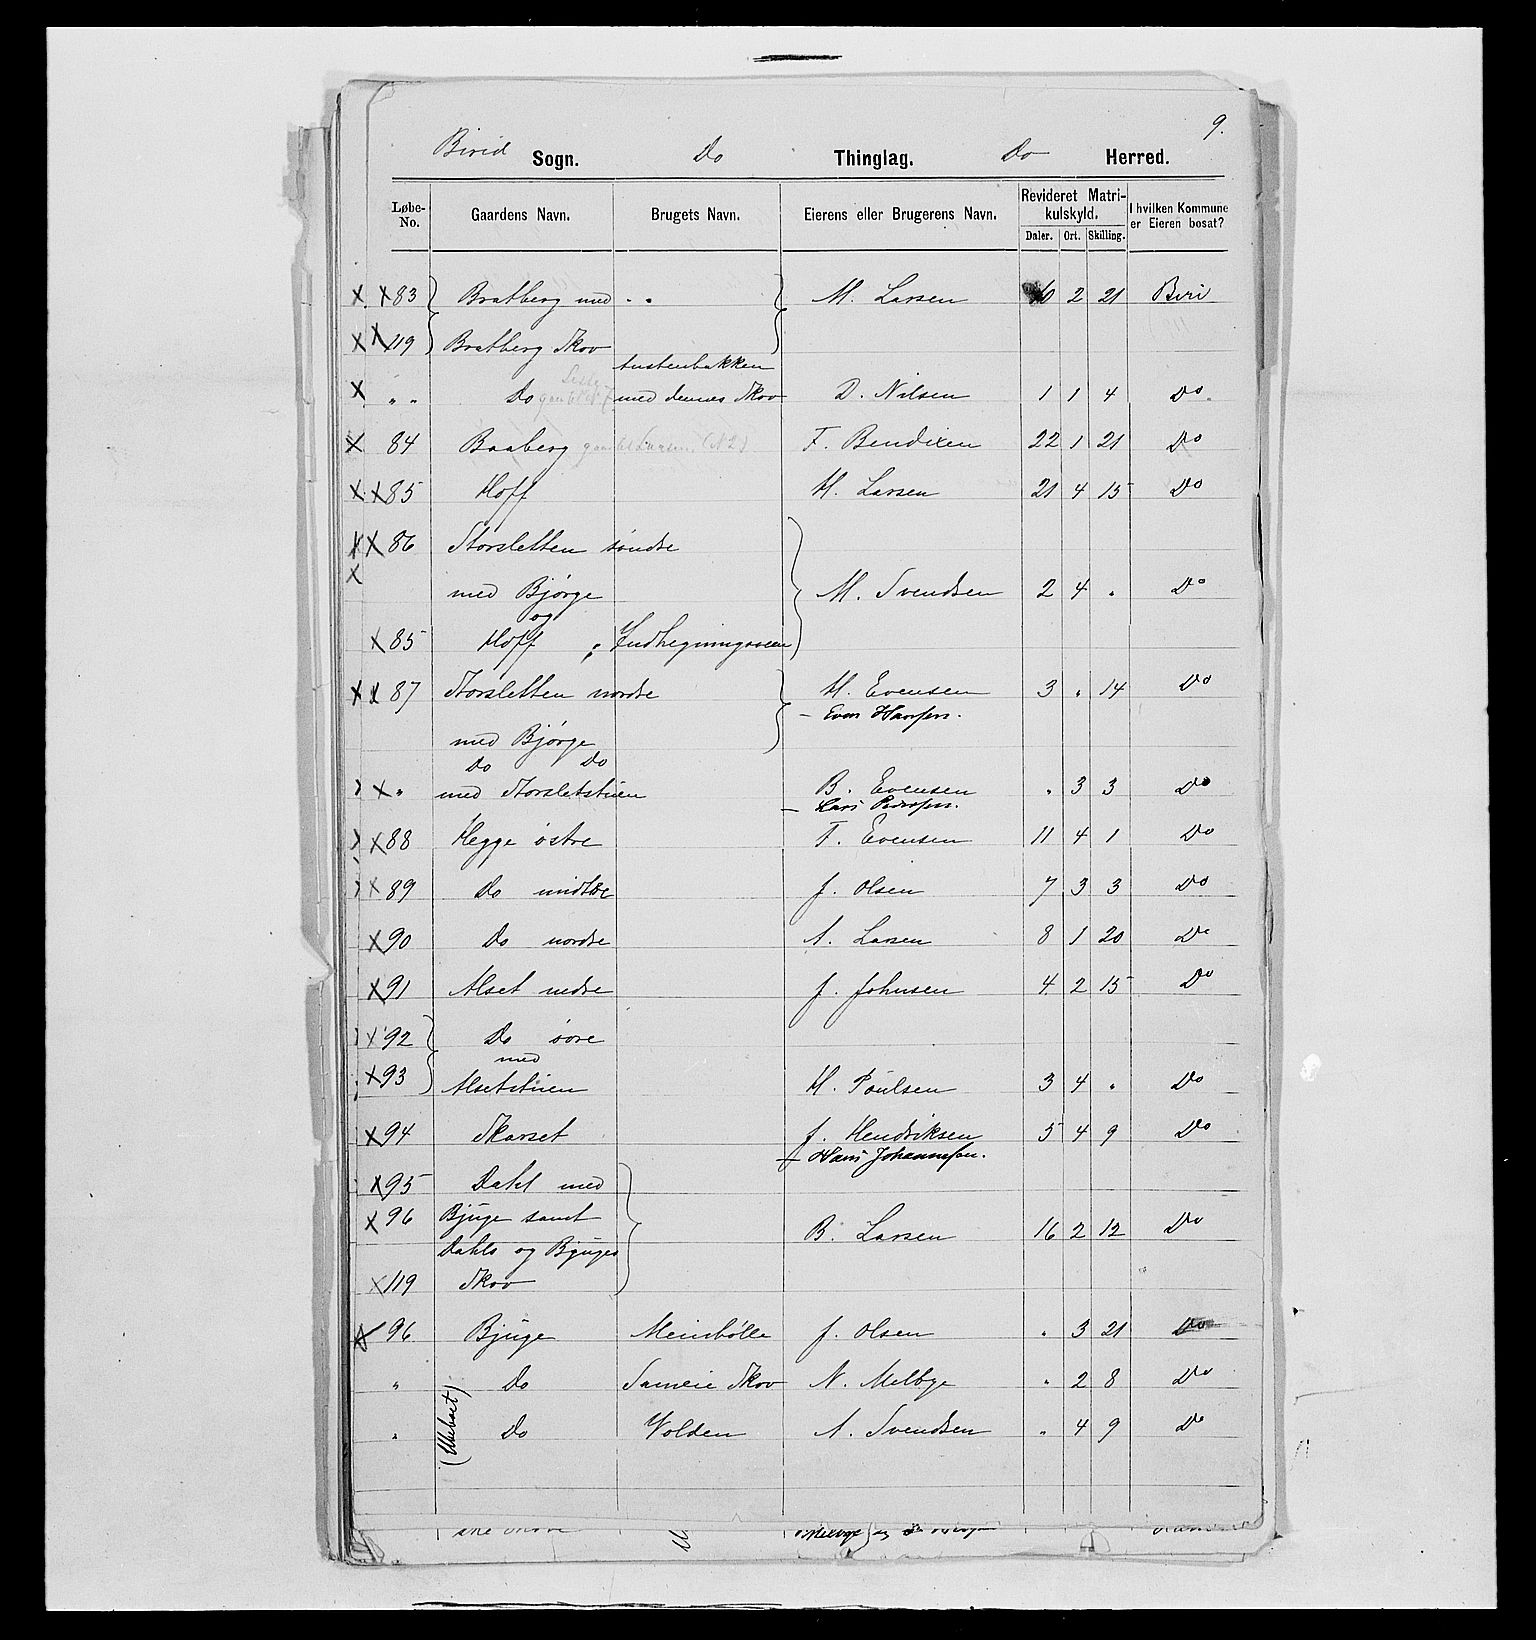 9.
Birid Sogn. Do Thinglag. Do Herred.
Løbe-No. Gaardens Navn. Brugets Navn. Eierens eller Brugerens Navn. Revideret Matrikulskyld. Daler. Ort. Skilling. I hvilken Kommune er Eieren bosat?
X X 83 Bratberg med " " M. Larsen 6 2 21 Biri
X X 119 Bratberg Skov
X " " Do Austenbakken med dennes Skov D. Nilsen 1 1 4 Do
X 84 Braaberg F. Bendixen 22 1 21 Do
X X 85 Hoff H. Larsen 21 4 15 Do
X X 86 Storsletten søndre
X med Bjørge M. Svendsen 2 4 " Do
og
X 85 Hoff " Indhegningsveen
X X 87 Storsletten nordre H. Evensen 3 " 14 Do
– Even Hansen.
med Bjørge
Do Do
X " med Storsletstuen B. Evensen " 3 3 Do
– Lars Pedersen.
X 88 Hegge østre F. Evensen 11 4 1 Do
X 89 Do midtre J. Olsen 7 3 3 Do
X 90 Do nordre A. Larsen 8 1 20 Do
X 91 Alset nedre J. Johnsen 4 2 15 Do
X 92 Do øvre
med
X 93 Alsetstuen H. Poulsen 3 4 " Do
X 94 Skarset J. Hendriksen 5 4 9 Do
– Hans Johannesen.
X 95 Dahl med
X 96 Bjuge samt B. Larsen 16 2 12 Do
Dahls og Bjuges
X 119 Skov
X 96 Bjuge Meierbølle J. Olsen " 3 21 Do
" Do Sameie Skov N. Melbye " 2 8 Do
" Do Volden A. Svendsen " 4 9 Do